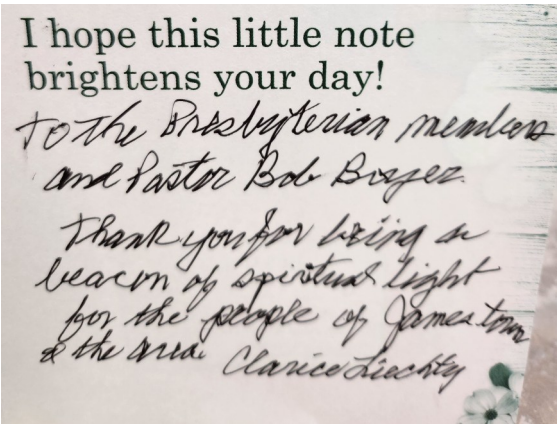 I hope this little note
brightens your day!
To the Presbyterian members
and Pastor Bob Boyer.
Thank you for being a
beacon of spiritual light
for the people of Jamestown
& the area. Clarice Liechty